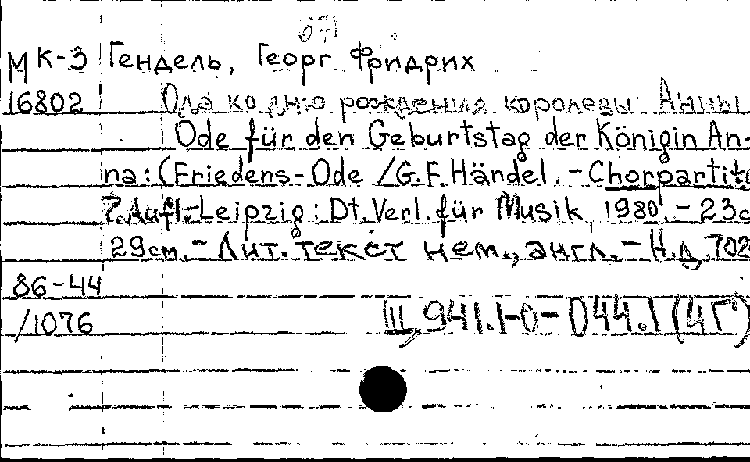 МК-3 Гендель, Георг Фридрих
16802 Ода ко дню рождения королевы Анны
Ode für den Geburtstag der Königin An-
na: (Friedens-Ode /G.F.Händel. - Chorpartit.
Aufl.-Leipzig: Dt.Verl.für Musik, 1980. - 23c
29см. - Лит. текст нем., англ. - Н.д. 702
86-44
/1076 III, 941.1-0-044.1(4Г)